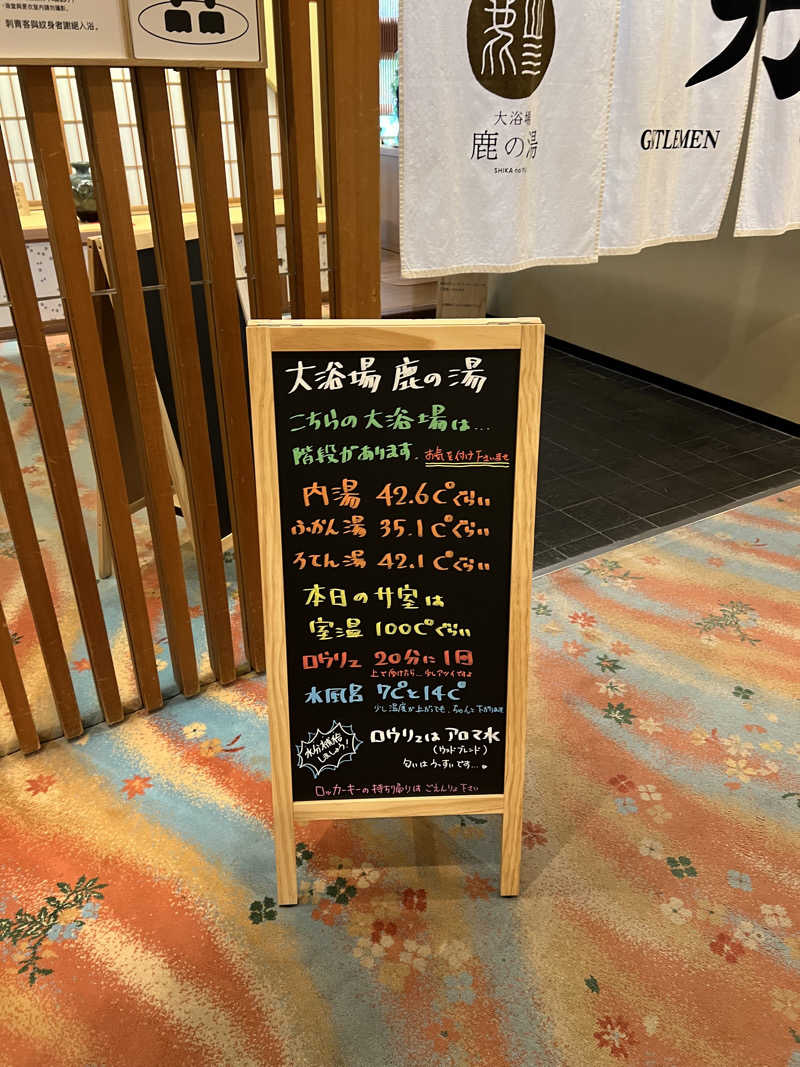 刺青客與紋身者謝絕入浴。
大浴場
鹿の湯
SHIKA no YU
GENTLEMEN
大浴場 鹿の湯
こちらの大浴場は...
階段があります. お気を付け下さいませ
内湯 42.6℃ぐらい
ふかん湯 35.1℃ぐらい
ろてん湯 42.1℃ぐらい
本日のサ室は
室温 100℃ぐらい
ロウリュ 20分に1回
水風呂 7℃と14℃
少し温度が上がっても、ちゃんと下がります
水分補給
しましょう!
ロウリュは アロマ水
(ウッドブレンド)
匂いはうっすいです...
ロッカーキーの持ち帰りは ごえんりょ下さい